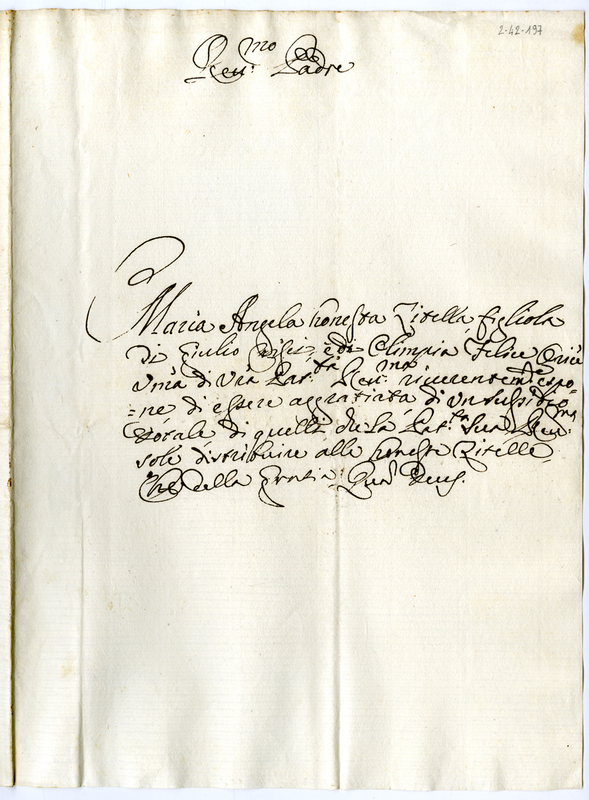 2-42-197
Reu.mo Padre
Maria Angela honesta Zitella figliola
di Giulio è di Olimpia Felice
umà di Vrà Pat.tà Reu.mo riuerentem.e espo=
=ne di essere aggratiata di un sussidio
dotale di quelli che la Pat.tà Sua Reu:ma
sole distribuire alle honeste Zitelle
Che della Gratia: Quã Deus.